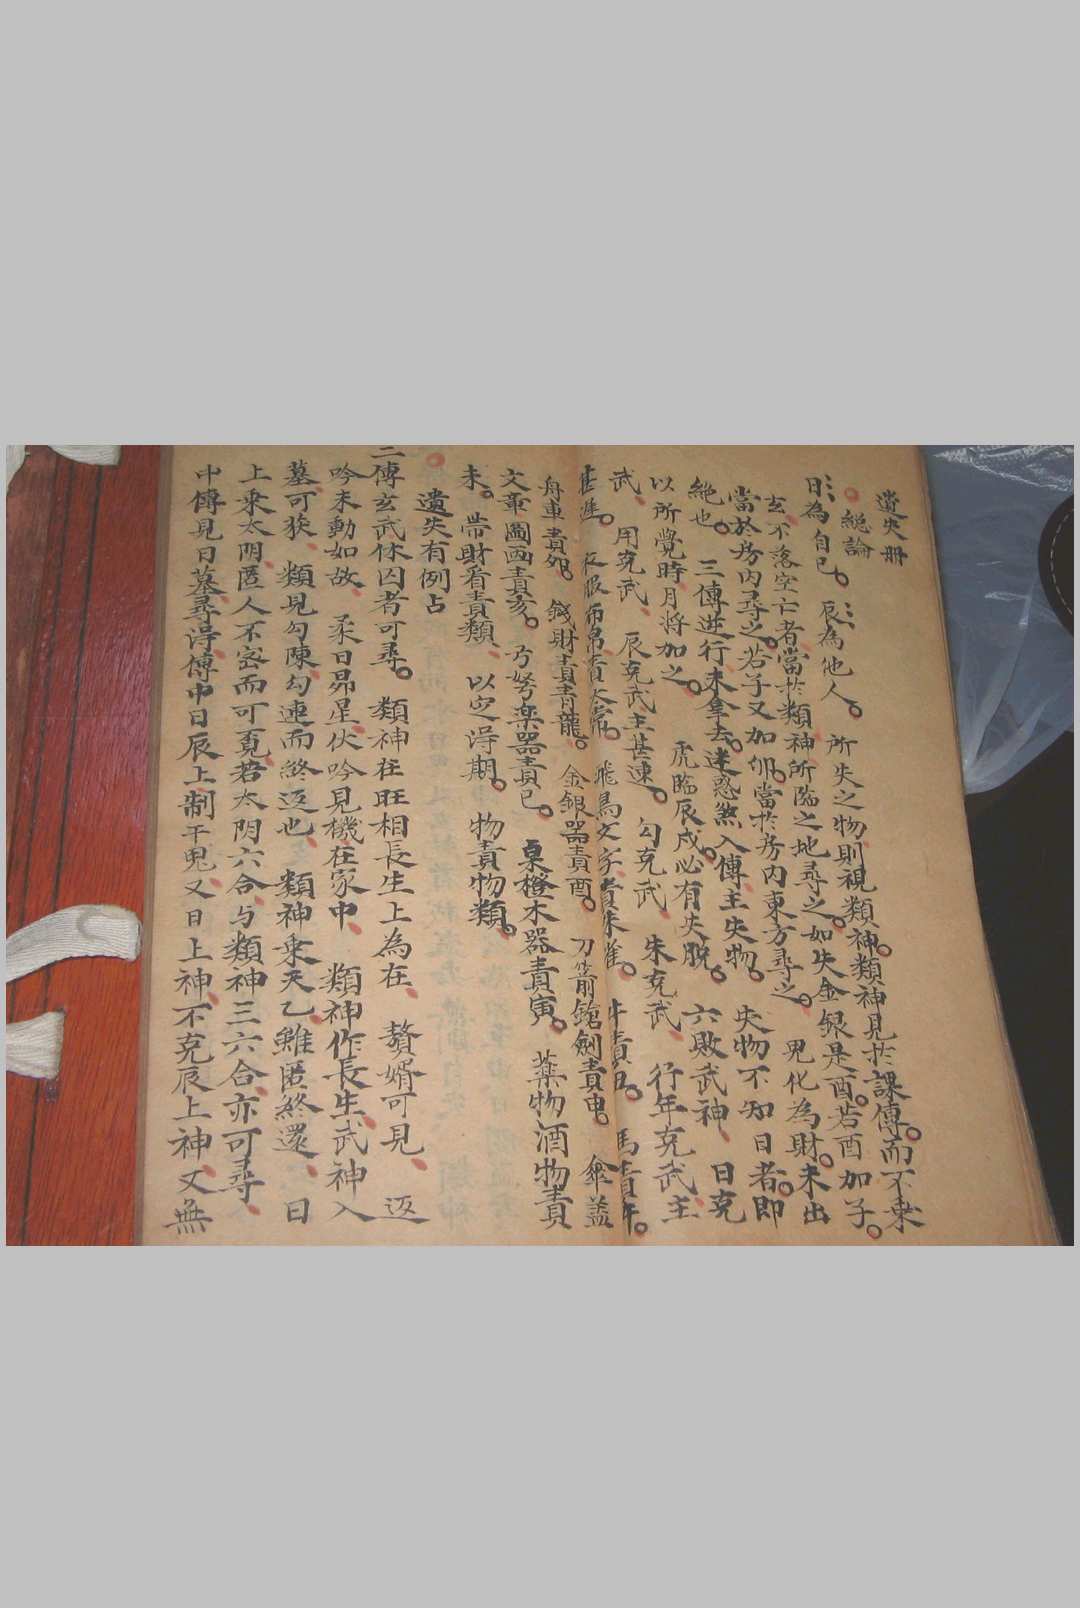 遺失册
總論
日為自己 辰為他人 所失之物則視類神類神見於課傳而不乘
玄不落空亡者當於類神所臨之地尋之如失金銀是酉若酉加子
當於房内尋之若子又加卯當於房内東方尋之 鬼化為財未出
絶也 三傳進行未拿去迷惑煞入傳主失物 失物不知日者即
以所覺時月將加之 虎臨辰戌必有失脫 六敗武神 日克
武 用克武 辰克武主甚速 勾克武 朱克武 行年克武主
甚遲 衣服布帛責太常 飛鳥文字責朱雀 牛責丑 馬責午
舟車責卯 錢財責青龍 金銀器責酉 刀箭鎗劍責申 傘蓋
文章圖画責亥 弓弩楽器責巳 桌橙木器責寅 薬物酒物責
未 帶財看責類 以定得期 物責物類
遺失有例占
三傳玄武休囚者可尋 類神在旺相長生上為在 贅婿可見 返
吟未動如故 柔日昴星伏吟見機在家中 類神作長生武神入
墓可獲 類見勾陳勾連而終返也 類神乘天乙雖匿終還 日
上乘太阴匿人不密而可覓若太阴六合与類神三六合亦可尋
中傳見日墓尋得傳中日辰上制干鬼又日上神不克辰上神又無